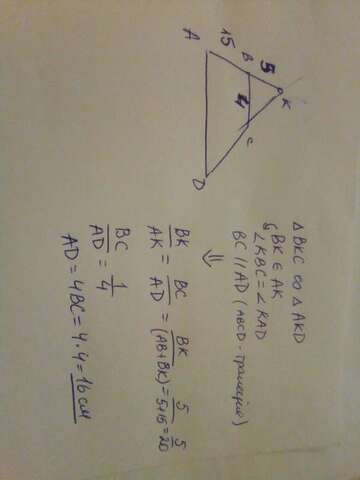 A 15 B 5 K
4
C
D
△ BKC ∞ △ AKD
BK ∈ AK
∠KBC = ∠KAD
BC || AD (ABCD - трапеция)
⇓
BK/AK = BC/AD = BK/(AB+BK) = 5/5+15 = 5/20
BC/AD = 1/4
AD = 4BC = 4·4 = 16 см